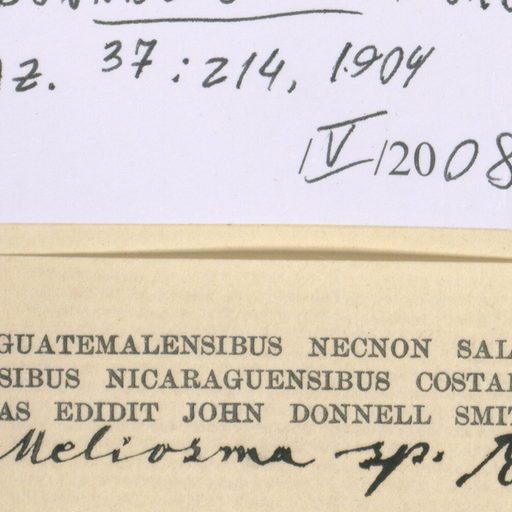 az. 37:214, 1904
/V/2008
GUATEMALENSIBUS NECNON SAL
SIBUS NICARAGUENSIBUS COSTA
AS EDIDIT JOHN DONNELL SMIT
Meliosma sp.